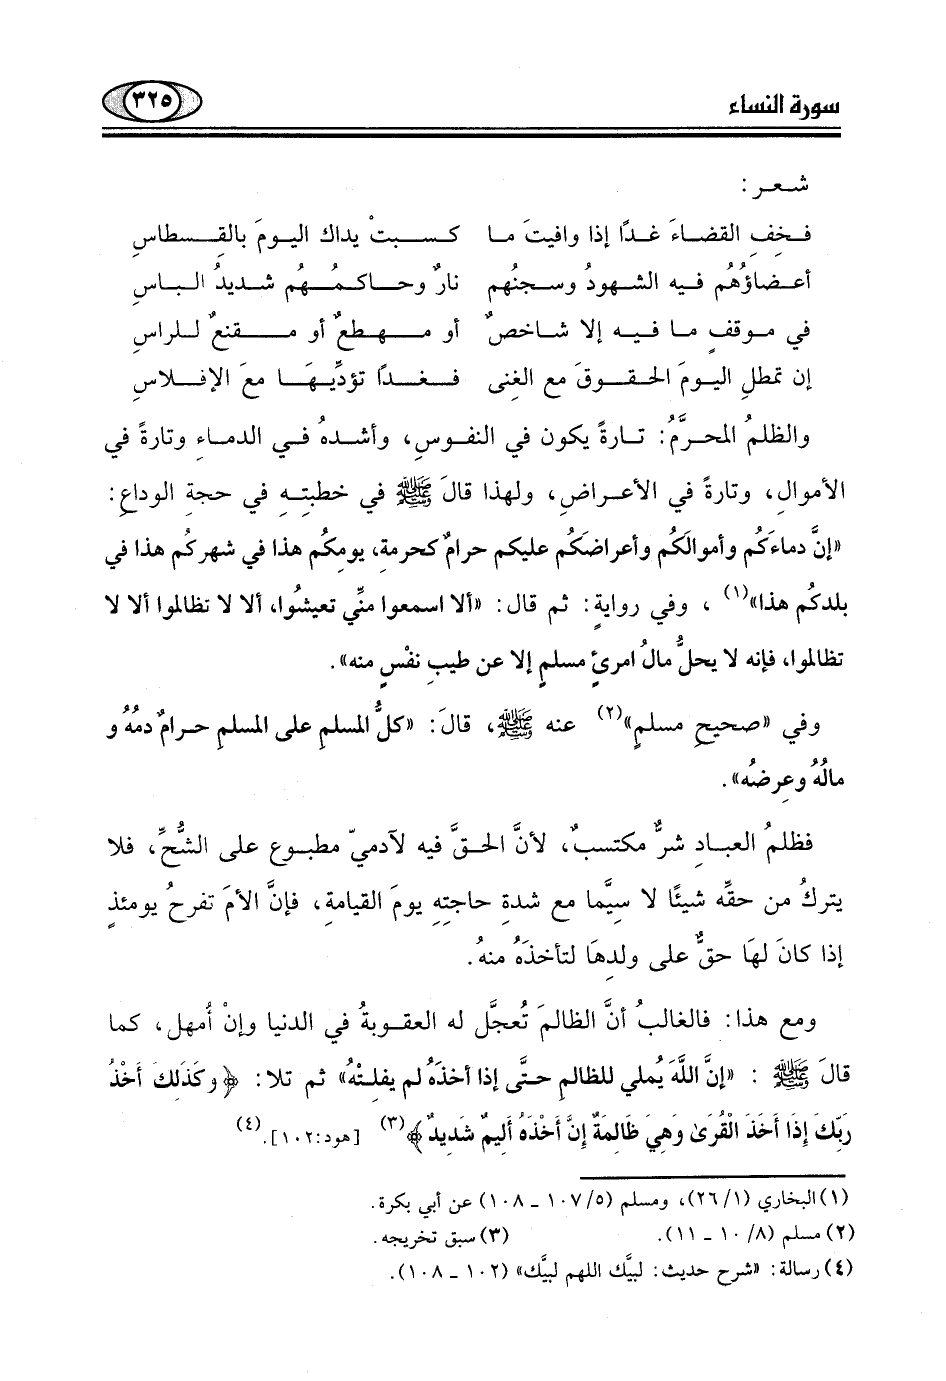 سورة النساء ٣٢٥
شعر :
فخفِ القضاءَ غدًا إذا وافيتَ ما كسبتْ يداك اليومَ بالقسطاسِ
أعضاؤُهُم فيه الشهودُ وسجنُهم نارٌ وحاكمُهُم شديدُ الباسِ
في موقفٍ ما فيه إلا شاخصٌ أو مهطعٌ أو مقنعٌ للراسِ
إن تمطلِ اليومَ الحقوقَ مع الغِنى فغدًا تؤدِّيهَا مع الإفلاسِ
والظلمُ المحرَّمُ: تارةً يكون في النفوسِ، وأشدهُ في الدماءِ وتارةً في
الأموالِ، وتارةً في الأعراضِ، ولهذا قالَ ﷺ في خطبتِهِ في حجةِ الوداعِ:
«إنَّ دماءَكُم وأموالَكُم وأعراضَكُم عليكم حرامٌ كحرمةِ، يومِكُم هذا في شهرِكُم هذا في
بلدكُم هذا»(١) ، وفي روايةٍ: ثم قال: «ألا اسمعوا منِّي تعيشُوا، ألا لا تظالموا ألا لا
تظالموا، فإنه لا يحلُّ مالُ امرئٍ مسلمٍ إلا عن طيبِ نفْسٍ منه».
وفي «صحيحِ مسلمٍ»(٢) عنه ﷺ، قالَ: «كلُّ المسلمِ على المسلمِ حرامٌ دمُهُ و
مالُهُ وعرضُه».
فظلمُ العبادِ شرٌّ مكتسبٌ، لأنَّ الحقَّ فيه لآدميّ مطبوع على الشُّحِّ، فلا
يتركُ من حقِّه شيئًا لا سيَّما مع شدةِ حاجتِهِ يومَ القيامةِ، فإنَّ الأمَ تفرحُ يومئذٍ
إذا كانَ لهَا حقٌّ على ولدِهَا لتأخذَهُ منهُ.
ومع هذا: فالغالبُ أنَّ الظالمَ تُعجَّل له العقوبةُ في الدنيا وإنْ أُمهل، كما
قالَ ﷺ : «إنَّ اللَّهَ يُملي للظالمِ حتَّى إذا أخذَهُ لم يفلتْهُ» ثم تلا: ﴿وكَذَلِكَ أَخْذُ
رَبِّكَ إذَا أَخَذَ الْقُرَىٰ وَهِيَ ظَالِمَةٌ إِنَّ أَخْذَهُ أَلِيمٌ شَدِيدٌ﴾(٣) [هود:١٠٢].(٤)
(١) البخاري (٢٦/١)، ومسلم (١٠٧/٥ ـ ١٠٨) عن أبي بكرة.
(٢) مسلم (١٠/٨ ـ ١١). (٣) سبق تخريجه.
(٤) رسالة: «شرح حديث: لبيَّك اللهم لبيَّك» (١٠٢ ـ ١٠٨).